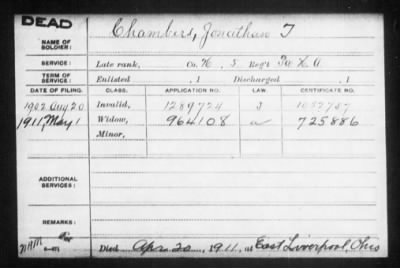 DEAD
NAME OF SOLDIER: Chambers, Jonathan T
SERVICE: Late rank, Co. K, 5 Reg't Pa. H. A
TERM OF SERVICE: Enlisted , 1 Discharged , 1
DATE OF FILING. CLASS. APPLICATION NO. LAW. CERTIFICATE NO.
1902 Aug 20 Invalid, 1289724 1057757
1911, May 1 Widow, 964108 a 725886
Minor,
ADDITIONAL SERVICES:
REMARKS:
Died Apr 20, 1911, at East Liverpool, Ohio